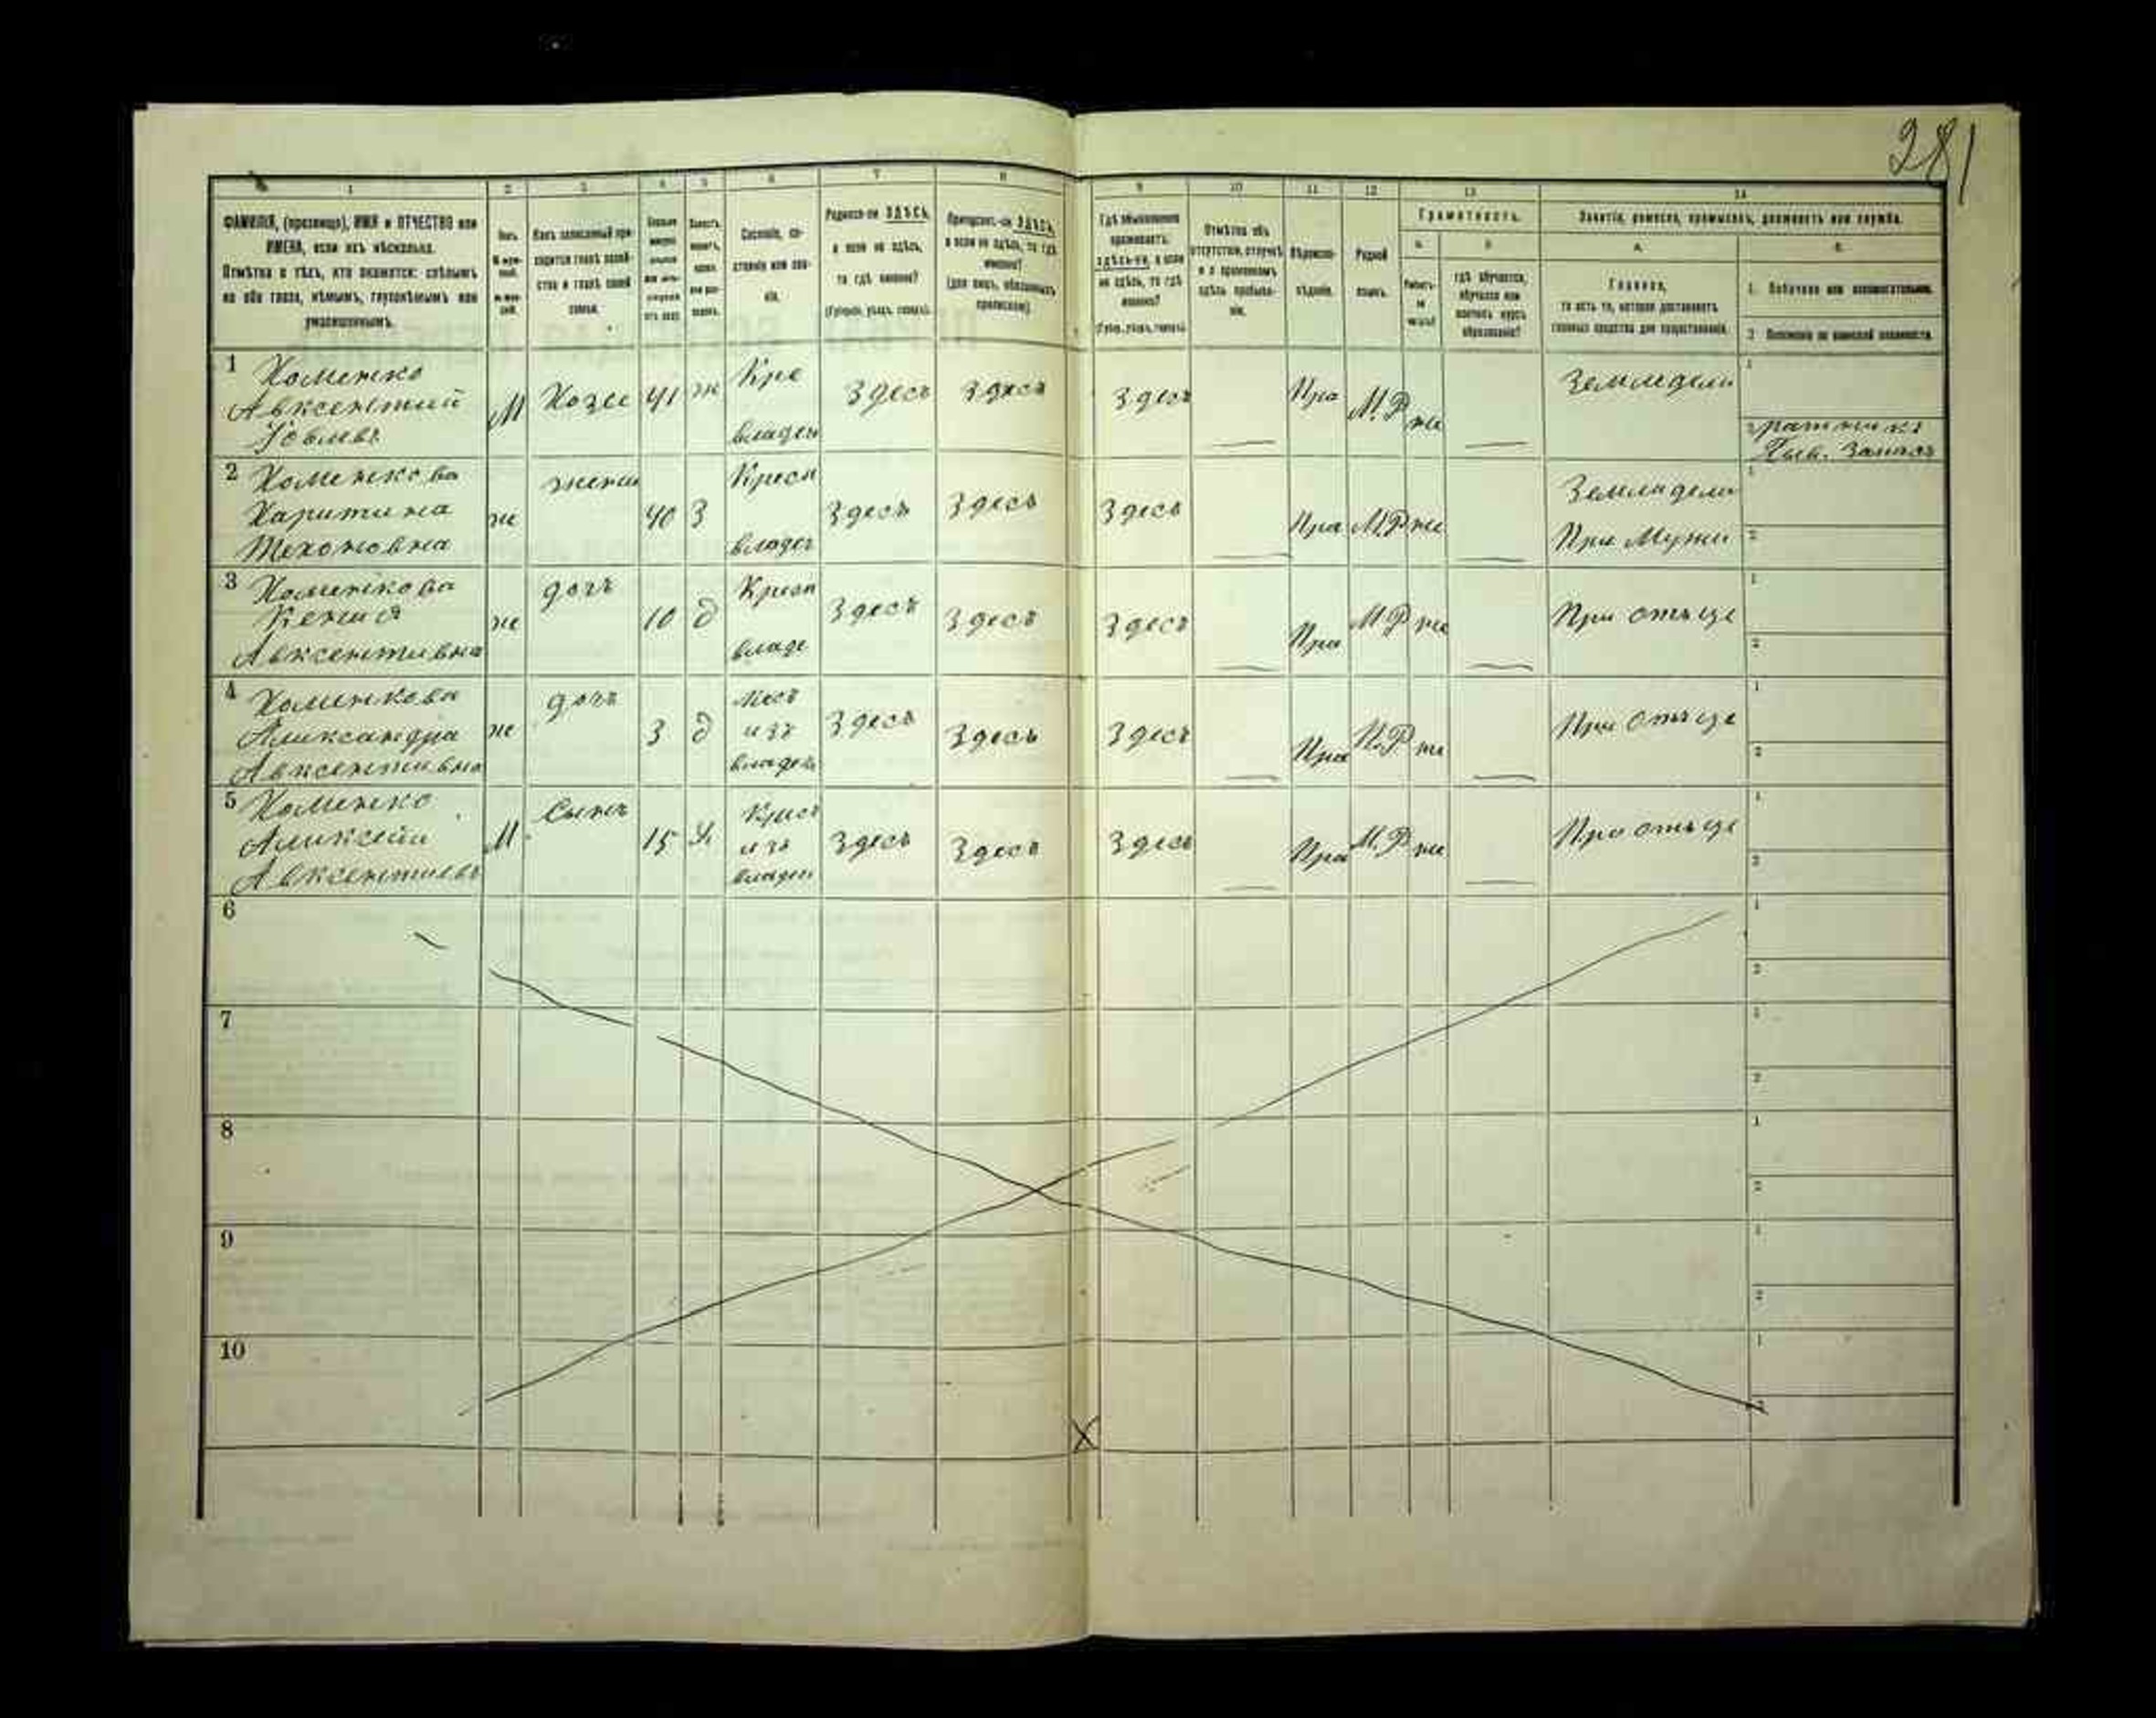 281
1 2 3 4 5 6 7 8 9 10 11 12 13 14
ФАМИЛІЯ, (прозвище), ИМЯ и ОТЧЕСТВО или
ИМЕНА, если ихъ нѣсколько.
Отмѣтка о тѣхъ, кто окажется: слѣпымъ
на оба глаза, нѣмымъ, глухонѣмымъ или
умалишеннымъ.
Полъ.
Какъ записанный при-
ходится главѣ хозяй-
ства и главѣ своей
семьи.
Сословіе, со-
стояніе или зва-
ніе.
Родился-ли ЗДѢСЬ,
а если не здѣсь,
то гдѣ именно?
(Губернія, уѣздъ, городъ).
Приписанъ-ли ЗДѢСЬ,
а если не здѣсь, то гдѣ
именно?
(для лицъ, обязанныхъ
припискою).
Гдѣ обыкновенно
проживаетъ:
здѣсь-ли, а если
не здѣсь, то гдѣ
именно?
(Губер., уѣздъ, городъ).
Отмѣтка объ
отсутствіи, отлучкѣ
и о временномъ
здѣсь пребыва-
ніи.
Вѣроиспо-
вѣданіе.
Родной
языкъ.
Грамотность.
а.
б.
гдѣ обучается,
обучался или
кончилъ курсъ
образованія?
Занятіе, ремесло, промыселъ, должность или служба.
А.
Б.
Главное,
то есть то, которое доставляетъ
главныя средства для существованія.
1. Побочное или вспомогательное.
2. Положеніе по воинской повинности.
1
Хоменко
Авксентий
Іовлевъ
М
Хозе
41
ж
Кре
владел
Здесь
Здесь
Здесь
Пра
М.Р
не
Земледели
1
2 ратникъ
2
Хоменкова
Харитина
Техоновна
же
жена
40
З
Кресп
владел
Здесь
Здесь
Здесь
Пра
М.Р
не
Земледели
При Мужи
1
2
3
Хоменкова
Авксентивна
же
дочъ
10
д
Кресп
владе
Здесь
Здесь
Здесь
Пра
М.Р
не
При отьце
1
2
4
Хоменкова
Александра
Авксентивна
же
дочъ
3
д
изъ
владел
Здесь
Здесь
Здесь
Пра
М.Р
не
При отьце
1
2
5
Хоменко
Алексей
Авксентиевъ
М
Сынъ
15
Х
Крес
изъ
владел
Здесь
Здесь
Здесь
Пра
М.Р
не
При отьце
1
2
6
1
2
7
1
2
8
1
2
9
1
2
10
1
2